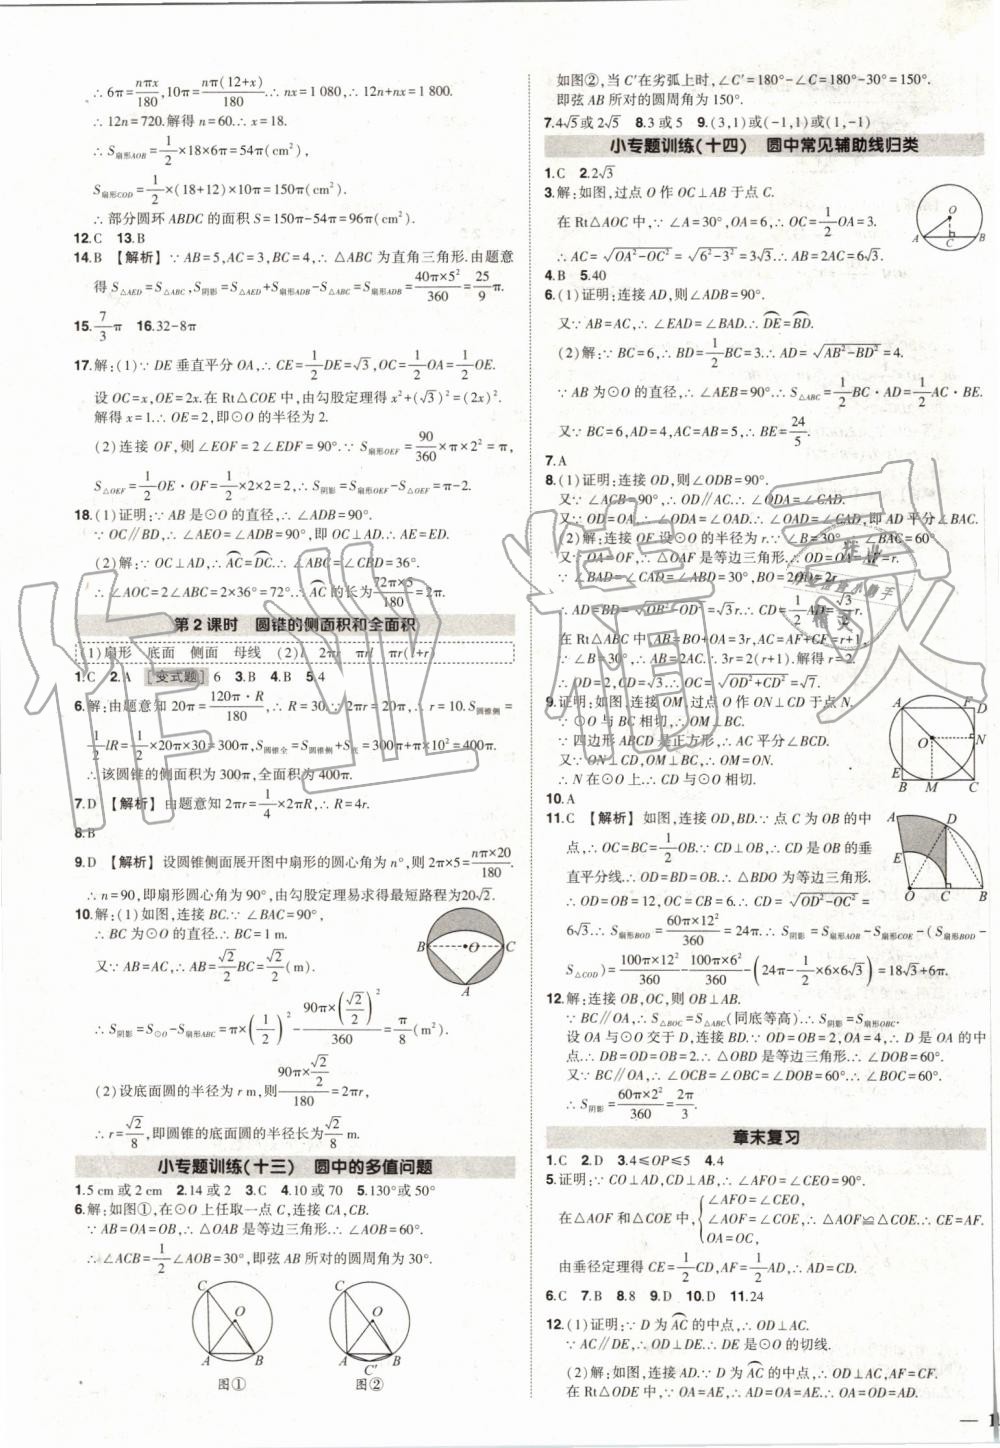 ∴6π=nπx/180,10π=nπ(12+x)/180.∴nx=1 080,12n+nx=1 800.
∴12n=720.解得n=60.∴x=18.
∴S扇形AOB=1/2×18×6π=54π(cm²),
S扇形COD=1/2×(18+12)×10π=150π(cm²).
∴部分圆环ABDC的面积S=150π-54π=96π(cm²).
12.C 13.B
14.B 【解析】∵AB=5,AC=3,BC=4,∴△ABC为直角三角形.由题意
得S△AED=S△ABC,S阴影=S△AED+S扇形ADB-S△ABC=S扇形ADB=40π×5²/360=25/9 π.
15.7/3 π 16.32-8π
17.解:(1)∵DE垂直平分OA,∴CE=1/2DE=√3,OC=1/2OA=1/2OE.
设OC=x,OE=2x.在Rt△COE中,由勾股定理得x²+(√3)²=(2x)².
解得x=1.∴OE=2,即⊙O的半径为2.
(2)连接OF,则∠EOF=2∠EDF=90°.∵S扇形OEF=90/360×π×2²=π,
S△OEF=1/2OE·OF=1/2×2×2=2,∴S阴影=S扇形OEF-S△OEF=π-2.
18.(1)证明:∵AB是⊙O的直径,∴∠ADB=90°.
∵OC∥BD,∴∠AEO=∠ADB=90°,即OC⊥AD.∴AE=ED.
(2)解:∵OC⊥AD,∴AC=DC.∴∠ABC=∠CBD=36°.
∴∠AOC=2∠ABC=2×36°=72°.∴AC的长为72π×5/180=2π.
第2课时 圆锥的侧面积和全面积
(1)扇形 底面 侧面 母线 (2)l 2πr πrl πr(l+r)
1.C 2.A [变式题]6 3.B 4.B 5.4
6.解:由题意知20π=120π·R/180,∴R=30.∵2πr=20π,∴r=10.S圆锥侧=
1/2lR=1/2×20π×30=300π,S圆锥全=S圆锥侧+S底=300π+π×10²=400π.
∴该圆锥的侧面积为300π,全面积为400π.
7.D 【解析】由题意知2πr=1/4×2πR,∴R=4r.
8.B
9.D 【解析】设圆锥侧面展开图中扇形的圆心角为n°,则2π×5=nπ×20/180.
∴n=90,即扇形圆心角为90°,由勾股定理易求得最短路程为20√2.
10.解:(1)如图,连接BC.∵∠BAC=90°,
∴BC为⊙O的直径.∴BC=1 m.
又∵AB=AC,∴AB=√2/2×BC=√2/2(m).
∴S阴影=S⊙O-S扇形ABC=π×(1/2)²-90π×(√2/2)²/360=π/8(m²).
(2)设底面圆的半径为r m,则90π×√2/2/180=2πr,
∴r=√2/8,即圆锥的底面圆的半径长为√2/8 m.
B O C
A
小专题训练(十三) 圆中的多值问题
1.5 cm或2 cm 2.14或2 3.C 4.10或70 5.130°或50°
6.解:如图①,在⊙O上任取一点C,连接CA,CB.
∵AB=OA=OB,∴△OAB是等边三角形.∴∠AOB=60°.
∴∠ACB=1/2∠AOB=30°,即弦AB所对的圆周角为30°.
C O A B
图①
C O A B C′
图②
如图②,当C′在劣弧上时,∠C′=180°-∠C=180°-30°=150°.
即弦AB所对的圆周角为150°.
7.4√5或2√5 8.3或5 9.(3,1)或(-1,1)或(1,-1)
小专题训练(十四) 圆中常见辅助线归类
1.C 2.2√3
3.解:如图,过点O作OC⊥AB于点C.
在Rt△AOC中,∵∠A=30°,OA=6,∴OC=1/2OA=3.
∴AC=√(OA²-OC²)=√(6²-3²)=3√3.∴AB=2AC=6√3.
O A C B
4.B 5.40
6.(1)证明:连接AD,则∠ADB=90°.
又∵AB=AC,∴∠EAD=∠BAD.∴DE=BD.
(2)解:∵BC=6,∴BD=1/2BC=3.∴AD=√(AB²-BD²)=4.
∵AB为⊙O的直径,∴∠AEB=90°.∴S△ABC=1/2BC·AD=1/2AC·BE.
又∵BC=6,AD=4,AC=AB=5,∴BE=24/5.
7.A
8.(1)证明:连接OD,则∠ODB=90°.
又∵∠ACB=90°,∴OD∥AC.∴∠ODA=∠CAD.
又∵OD=OA,∴∠ODA=∠OAD.∴∠OAD=∠CAD,即AD平分∠BAC.
(2)解:连接OE.设⊙O的半径为r.∵∠B=30°,∴∠BAC=60°.
又∵OA=OF,∴△OAF是等边三角形.∴OD=OA=AF=r.
∴AB=BO+OA=3r,AC=AF+CF=r+1,
9.证明:如图,连接OM,过点O作ON⊥CD于点N.
∵⊙O与BC相切,∴OM⊥BC.
∵四边形ABCD是正方形,∴AC平分∠BCD.
又∵ON⊥CD,OM⊥BC,∴OM=ON.
∴N在⊙O上.∴CD与⊙O相切.
A D O N B M C
10.A
11.C 【解析】如图,连接OD,BD.∵点C为OB的中
点,∴OC=BC=1/2OB.∵CD⊥OB,∴CD是OB的垂
直平分线.∴BD=OD.∴△BDO为等边三角形.
∴OD=OB=12,OC=CB=6.∴CD=√(OD²-OC²)=
6√3.∴S扇形BOD=60π×12²/360=24π,∴S阴影=S扇形AOB-S扇形COE-(S扇形BOD-
S△COD)=100π×12²/360-100π×6²/360-(24π-1/2×6×6√3)=18√3+6π.
A D E O C B
12.解:连接OB,OC,则OB⊥AB.
∵BC∥OA,∴S△BOC=S△ABC(同底等高).∴S阴影=S扇形BOC.
设OA与⊙O交于D,连接BD.∵OD=OB=2,OA=4,∴D是OA的中
点.∴DB=OD=OB=2.∴△OBD是等边三角形.∴∠DOB=60°.
又∵BC∥OA,∴∠OCB=∠OBC=∠DOB=60°.∴∠BOC=60°.
∴S阴影=60π×2²/360=2π/3.
章末复习
1.C 2.D 3.4≤OP≤5 4.4
5.证明:∵CO⊥AD,CD⊥AB,∴∠AFO=∠CEO=90°.
在△AOF和△COE中,{∠AFO=∠CEO, ∠AOF=∠COE, OA=OC, ∴△AOF≌△COE.∴CE=AF.
由垂径定理得CE=1/2CD,AF=1/2AD,∴AD=CD.
6.C 7.B 8.8 9.D 10.D 11.24
12.(1)证明:∵D为AC的中点,∴OD⊥AC.
∵AC∥DE,∴OD⊥DE.∴DE是⊙O的切线.
(2)解:如图,连接AD.∵D为AC的中点,∴OD⊥AC,AF=CF.
在Rt△ODE中,∵OA=AE,∴AD=OA=AE.∴OA=OD=AD.